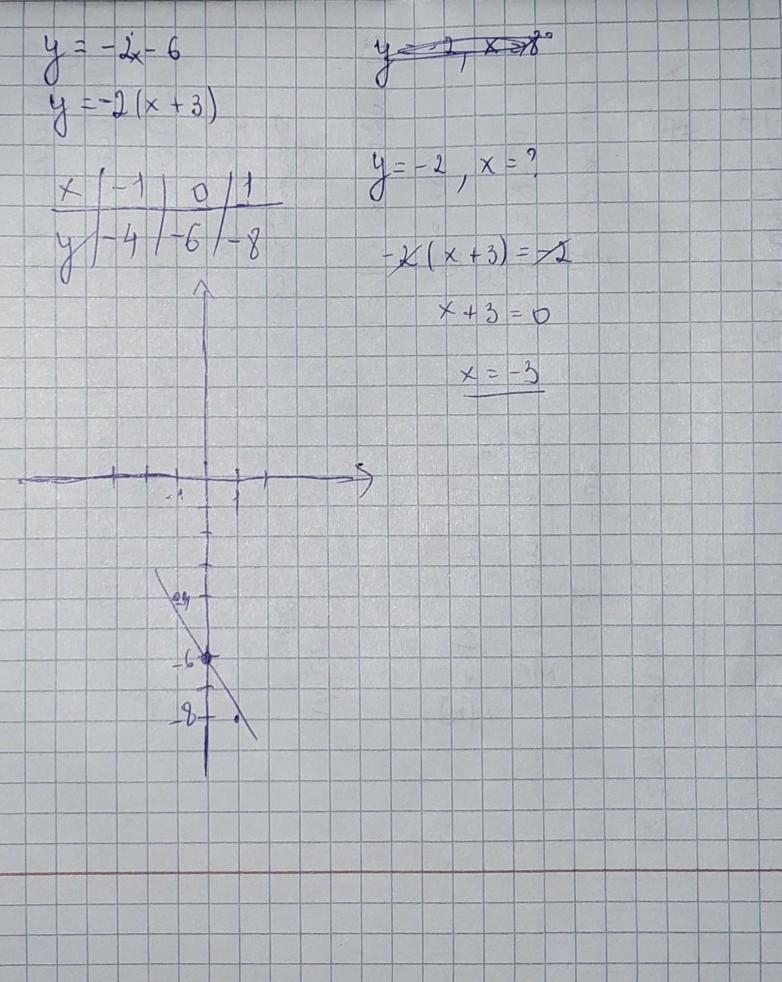 y = -2x - 6
y = -2(x + 3)
x | -1 | 0 | 1
y | -4 | -6 | -8
y = -2, x = ?
-2(x + 3) = -2
x + 3 = 0
x = -3
-1 1
-4
-6
-8